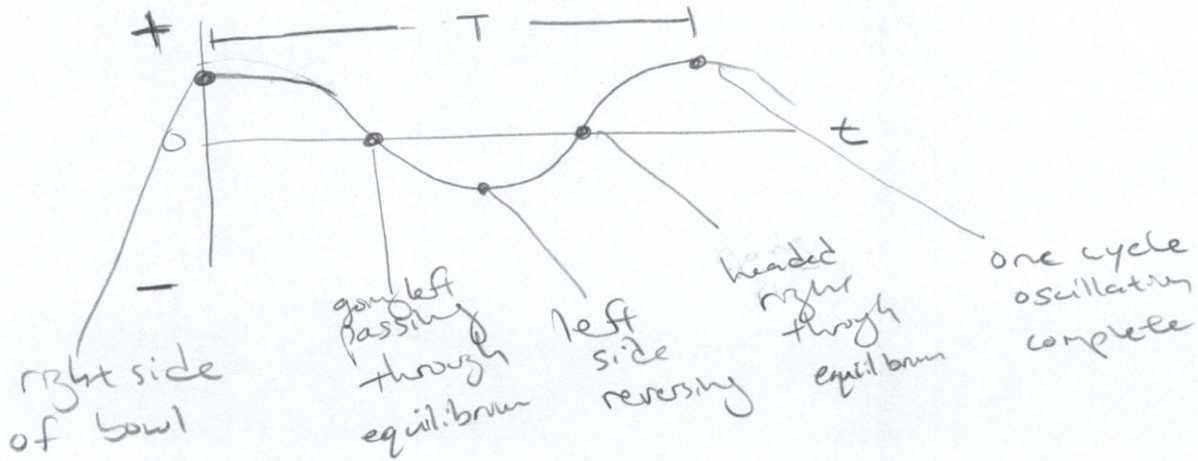 +
T
0
t
-
right side
of bowl
going left
passing
through
equilibrium
left
side
reversing
headed
right
through
equilibrium
one cycle
oscillation
complete